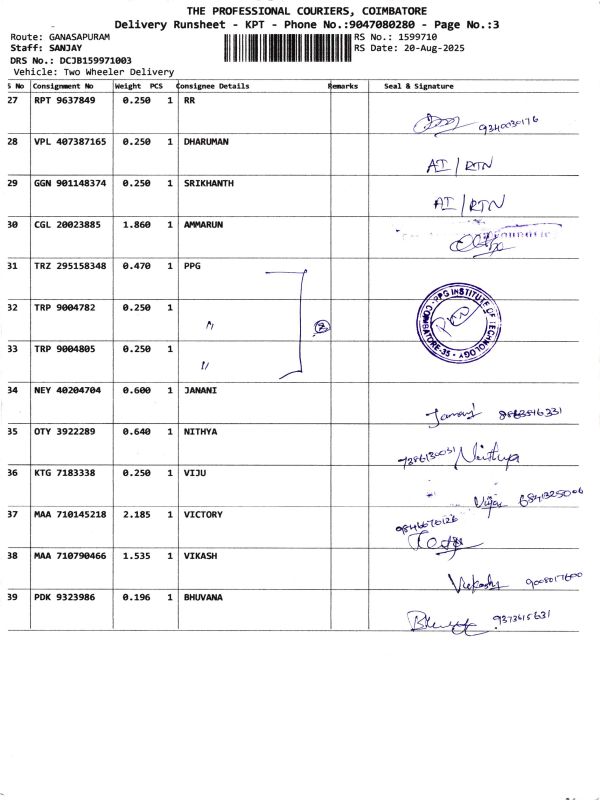 THE PROFESSIONAL COURIERS, COIMBATORE
Delivery Runsheet - KPT - Phone No.:9047080280 - Page No.:3
Route: GANASAPURAM RS No.: 1599710
Staff: SANJAY RS Date: 20-Aug-2025
DRS No.: DCJB159971003
Vehicle: Two Wheeler Delivery
S No Consignment No Weight PCS Consignee Details Remarks Seal & Signature
27 RPT 9637849 0.250 1 RR
9340030176
28 VPL 407387165 0.250 1 DHARUMAN
AI/RTN
29 GGN 901148374 0.250 1 SRIKHANTH
AI/RTN
30 CGL 20023885 1.860 1 AMMARUN
31 TRZ 295158348 0.470 1 PPG
32 TRP 9004782 0.250 1 〃
PPG INSTITUTE OF TECHNOLOGY COIMBATORE-35
33 TRP 9004805 0.250 1 〃
34 NEY 40204704 0.600 1 JANANI
Janani
35 OTY 3922289 0.640 1 NITHYA
Nithya
36 KTG 7183338 0.250 1 VIJU
Viju
37 MAA 710145218 2.185 1 VICTORY
38 MAA 710790466 1.535 1 VIKASH
Vikash
39 PDK 9323986 0.196 1 BHUVANA
9373615631